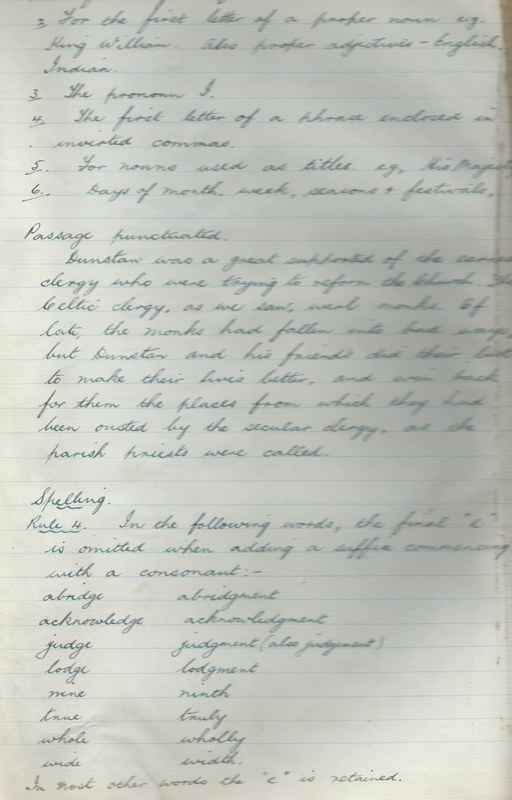 3 For the first letter of a proper noun e.g.
King William. Also proper adjectives - English,
Indian.
3 The pronoun I.
4. The first letter of a phrase enclosed in
inverted commas.
5. For nouns used as titles. eg, His Majesty
6. Days of month, week, seasons + festivals.
Passage punctuated.
Dunstan was a great supported of the
clergy who were trying to reform the church. The
Celtic clergy, as we saw, were monks. Of
late, the monks had fallen into bad ways,
but Dunstan and his friends did their best
to make their lives better, and win back
for them the places from which they had
been ousted by the secular clergy, as the
parish priests were called.
Spelling.
Rule 4. In the following words, the final "e"
is omitted when adding a suffix commencing
with a consonant:-
abridge abridgment
acknowledge acknowledgment
judge judgment (also judgement)
lodge lodgment
nine ninth
true truly
whole wholly
wide width.
In most other words the "e" is retained.